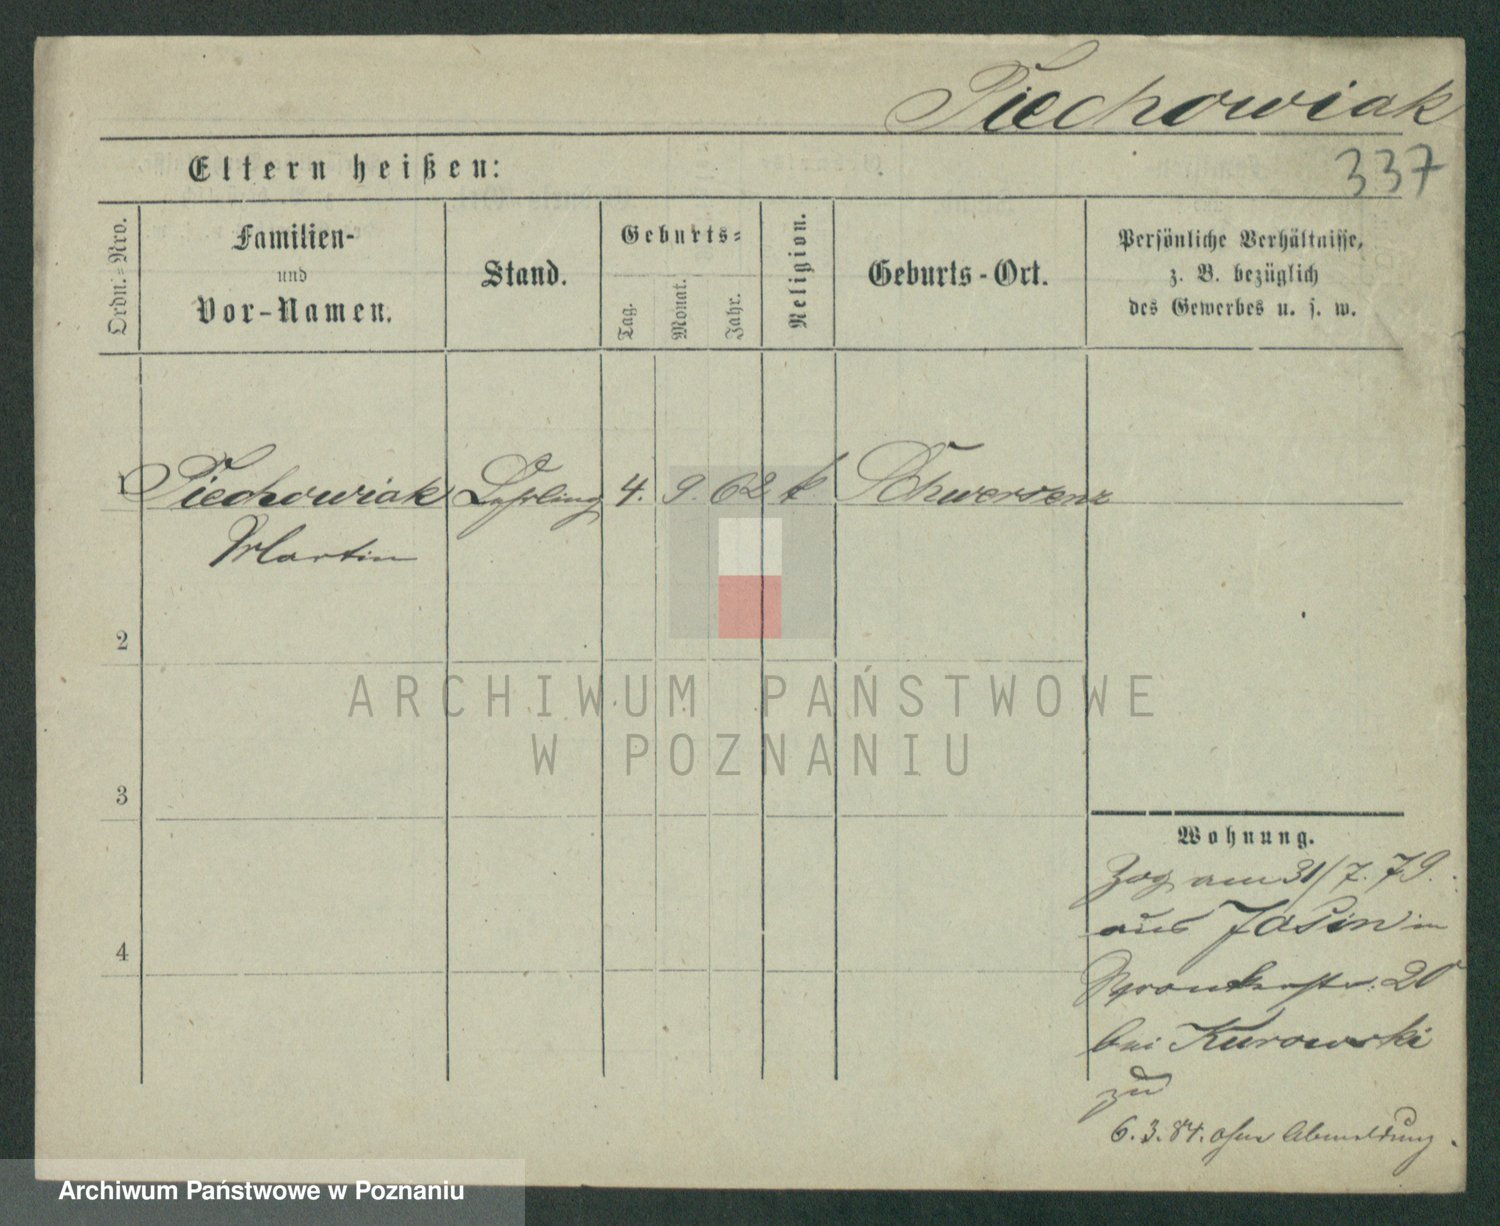 Piechowiak
337
Eltern heißen:
Ordn.-Nro.
Familien-
und
Vor-Namen.
Stand.
Geburts-
Tag.
Monat.
Jahr.
Religion.
Geburts-Ort.
Persönliche Verhältnisse,
z. B. bezüglich
des Gewerbes u. s. w.
1 Piechowiak Lehrling 4. 9. 62 k Schwersenz
Martin
2
ARCHIWUM PAŃSTWOWE
W POZNANIU
3
Wohnung.
Zog am 31/7. 79.
aus Jasin in
Wronkerstr. 20
bei Kurowski
zu
4
6.3.84. ohne Abmeldung.
Archiwum Państwowe w Poznaniu